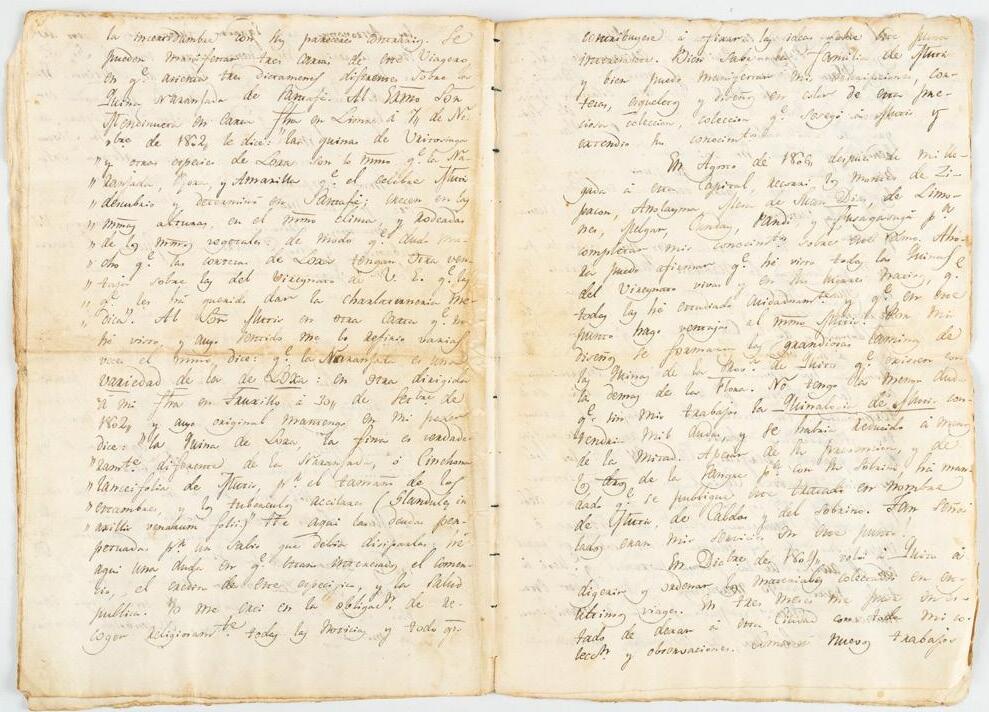 la incertidumbre con sus pareceres contrarios. Se
pueden manifestar tres cartas de este Viagero
en q.e asienta tres dictamenes diferentes sobre la
Quina Naranjada de Santafé. Al Exmo Sor
Mendinueta en carta fha en Lima á
bre de 1802 le dice: "las quinas de
"y otras especies de Loxa son lo mmo q.e la Na-
"ranjada, Roxa, y Amarilla q.e el celebre Mutis
"descubrio y determinó en Santafé; crecen en las
"mmas alturas, en el mmo clima, rodeadas
"de los mmos vegetales: de modo q.e dudo mu-
"cho q.e las cortezas de Loxa tengan otra ven-
"taja sobre las del Vireynato de V. E. q.e la
"q.e les há querido dar la charlataneria me-
"dica". Al Sor Mutis en otra carta q.e no
he visto, y cuyo sentido me lo refirio varias
veces el mmo, dice: q.e la Naranjada es una
variedad de la de Loxa: en otra dirigida
á mi fha en Truxillo á de Setbre de
1802 y cuyo original mantengo en mi poder
dice: "la Quina de Loxa, la fina es verdade-
"ramte diferente de la Naranjada, ó Cinchona
"lancifolia de Mutis, pr el tamaño de los
"estambres, y los tuberculos axilares (Glandulis in
"axillis venarum folii)". He aqui las dudas per-
petuadas pr un sabio que debia disiparlas: hé
aqui una duda en q.e estan interesados el comer-
cio, el credito de este especifico, y la salud
publica. Yo me crei en la obligacn de re-
coger religiosamte todas las noticias, y todo qto
contribuyese á fixar las ideas sobre este punto
interesante. Bien sabe la familia de Mutis
y bien puedo manifestar mis descripciones, cor-
tezas, esqueletos y diseños en color de esta pre-
ciosa coleccion, coleccion q.e sosegó á Mutis y
extendio sus conocimtos
En Agosto de despues de mi lle-
gada á esta Capital, recorri los montes de Zi-
pacon, Anolayma, Mesa de Juan Diaz, de Limo-
nes, Melgar, Cunday, Pandi, y Fusagasugá pa
completar mis conocimtos sobre este ramo. Aho-
ra puedo afirmar q.e hé visto todas las Quinas
del Vireynato vivas y en sus lugares nativos, q.e
todas las hé estudiado cuidadosamte y q.e en este
punto hago ventajas al mmo Mutis. Con mis
diseños se formaron las grandiosas laminas de
las Quinas de la Prov. de Quito q.e existen con
las demas de la Flora. No tengo la menor duda
q.e sin mis trabajos la Quinologia de Mutis con-
tendria mil dudas, y se habria reducido á menos
de la mitad. Apesar de la y de
los de la sangre pa con su sobrino, há man-
dado q.e se publique este tratado en nombre
de Mutis, de Caldas y del sobrino. Tan seña-
lados eran mis servicios en este punto!
En Dicbre de volví á Quito á
digerir y ordenar los materiales colectados en es-
te ultimo viage. En tres meses me puse en es-
tado de dexar á esta Ciudad con toda mi co-
leccn y observaciones. nuevos trabajos